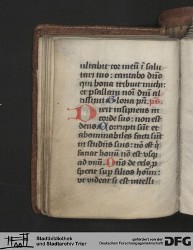 ultabit cor meū ī salu
tari tuo: cantabo dño
qui bona tribuit michi:
et psallam noī dñi al
tissimi Gloria pr̄i. pš.
Dixit insipiens in
corde suo: non est
deus Corrupti sūt et
abominabiles facti sūt
in studiis suis: nō est q̇
faciat bonū nō est usq̨
ad unū. Dñs de celo p̱
spexit sup filios hoīm:
ut videat si est intelli
Stadtbibliothek
und Stadtarchiv Trier
gefördert von der
Deutschen Forschungsgemeinschaft
DFG